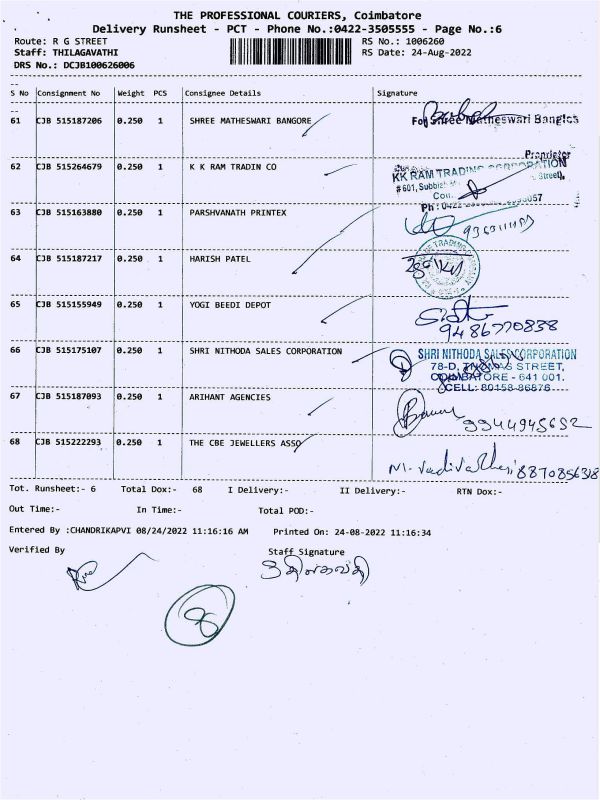 THE PROFESSIONAL COURIERS, Coimbatore
Delivery Runsheet - PCT - Phone No.:0422-3505555 - Page No.:6
Route: R G STREET RS No.: 1006260
Staff: THILAGAVATHI RS Date: 24-Aug-2022
DRS No.: DCJB100626006
S No Consignment No Weight PCS Consignee Details Signature
61 CJB 515187206 0.250 1 SHREE MATHESWARI BANGORE For Shree Matheswari Bangles
Proprietor
62 CJB 515264679 0.250 1 K K RAM TRADIN CO KK RAM TRADING CORPORATION
# 601, Street),
63 CJB 515163880 0.250 1 PARSHVANATH PRINTEX
64 CJB 515187217 0.250 1 HARISH PATEL
65 CJB 515155949 0.250 1 YOGI BEEDI DEPOT
9486770838
66 CJB 515175107 0.250 1 SHRI NITHODA SALES CORPORATION SHRI NITHODA SALES CORPORATION
78-D, STREET,
COIMBATORE - 641 001.
CELL: 80158-86876
67 CJB 515187093 0.250 1 ARIHANT AGENCIES
9944945652
68 CJB 515222293 0.250 1 THE CBE JEWELLERS ASSO
8870856318
Tot. Runsheet:- 6 Total Dox:- 68 I Delivery:- II Delivery:- RTN Dox:-
Out Time:- In Time:- Total POD:-
Entered By :CHANDRIKAPVI 08/24/2022 11:16:16 AM Printed On: 24-08-2022 11:16:34
Verified By Staff Signature